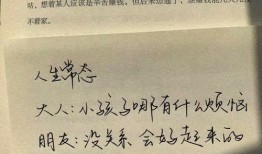 咕，想着某人应该是辛苦赚钱。但后来想通了，
不着家。
人生常态
大人：小孩子哪有什么烦恼
朋友：没关系 会好起来的